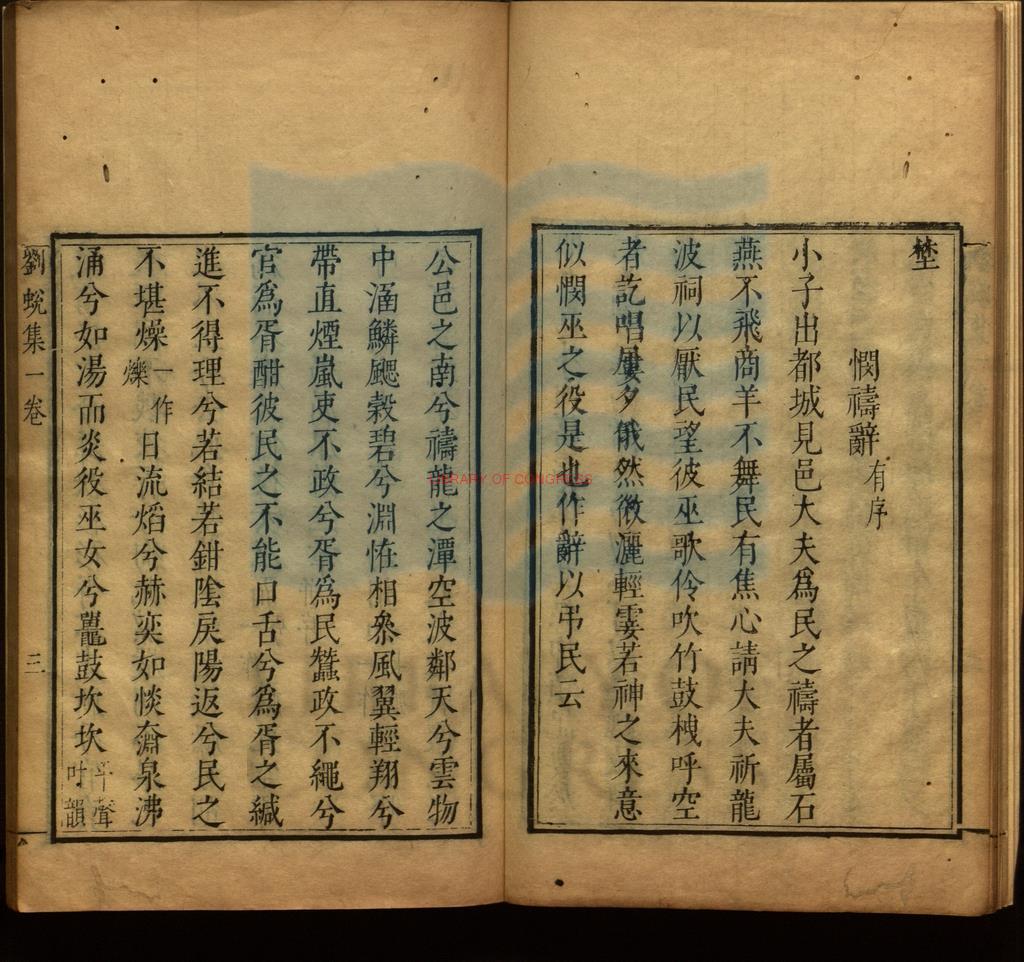 埜
憫禱辭有序
小子出都城見邑大夫爲民之禱者屬石
燕不飛商羊不舞民有焦心請大夫祈龍
波祠以厭民望彼巫歌伶吹竹鼓栧呼空
者訖唱屢夕俄然微灑輕霎若神之來意
似憫巫之役是也作辭以弔民云
公邑之南兮禱龍之潭空波鄰天兮雲物
中涵鱗颸縠碧兮淵怪相叅風翼輕翔兮
帶直煙嵐吏不政兮胥爲民蠶政不繩兮
官爲胥酣彼民之不能口舌兮爲胥之緘
進不得理兮若結若鉗陰戾陽返兮民之
不堪燥一作爍日流熖兮赫奕如惔奫泉沸
涌兮如湯而炎役巫女兮鼉鼓坎坎平聲叶韻
劉蛻集一卷 三
LIBRARY OF CONGRESS